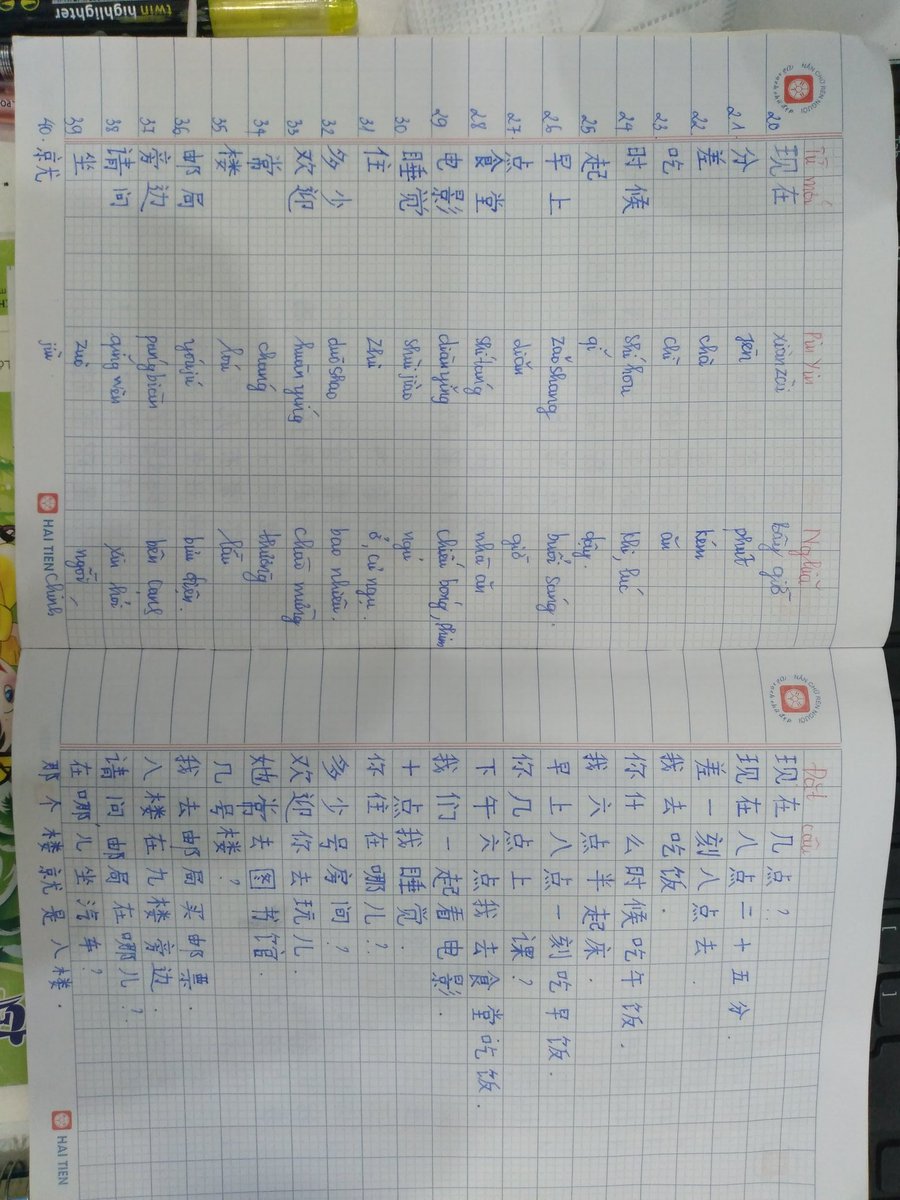 twin highlighter
NẮN CHỮ RÈN NGƯỜI
Từ mới Pin Yin Nghĩa
20 现在 xiàn zài bây giờ
21 分 fēn phút
22 差 chà kém
23 吃 chī ăn
24 时候 shí hou khi, lúc
25 起 qǐ dậy.
26 早上 zǎo shang buổi sáng.
27 点 diǎn giờ
28 食堂 shí táng nhà ăn
29 电影 diàn yǐng chiếu bóng, phim
30 睡觉 shuì jiào ngủ
31 住 zhù ở, cư ngụ.
32 多少 duō shao bao nhiêu.
33 欢迎 huān yíng chào mừng
34 常 cháng thường
35 楼 lóu lầu
36 邮局 yóu jú bưu điện.
37 旁边 páng biān bên cạnh
38 请问 qǐng wèn xin hỏi
39 坐 zuò ngồi
40. 就 jiù chính
HAI TIEN
NẮN CHỮ RÈN NGƯỜI
Đặt câu
现在几点?
现在八点二十五分.
差一刻八点去.
我去吃饭.
你什么时候吃午饭.
我六点半起床.
早上八点一刻吃早饭.
你几点上课?
下午六点我去食堂吃饭.
我们一起看电影.
十点我睡觉.
你住在哪儿?
多少号房间?
欢迎你去玩儿.
她常去图书馆.
几号楼?
我去邮局买邮票.
八楼在九楼旁边.
请问邮局在哪儿?
在哪儿坐汽车?
那个楼就是八楼.
HAI TIEN